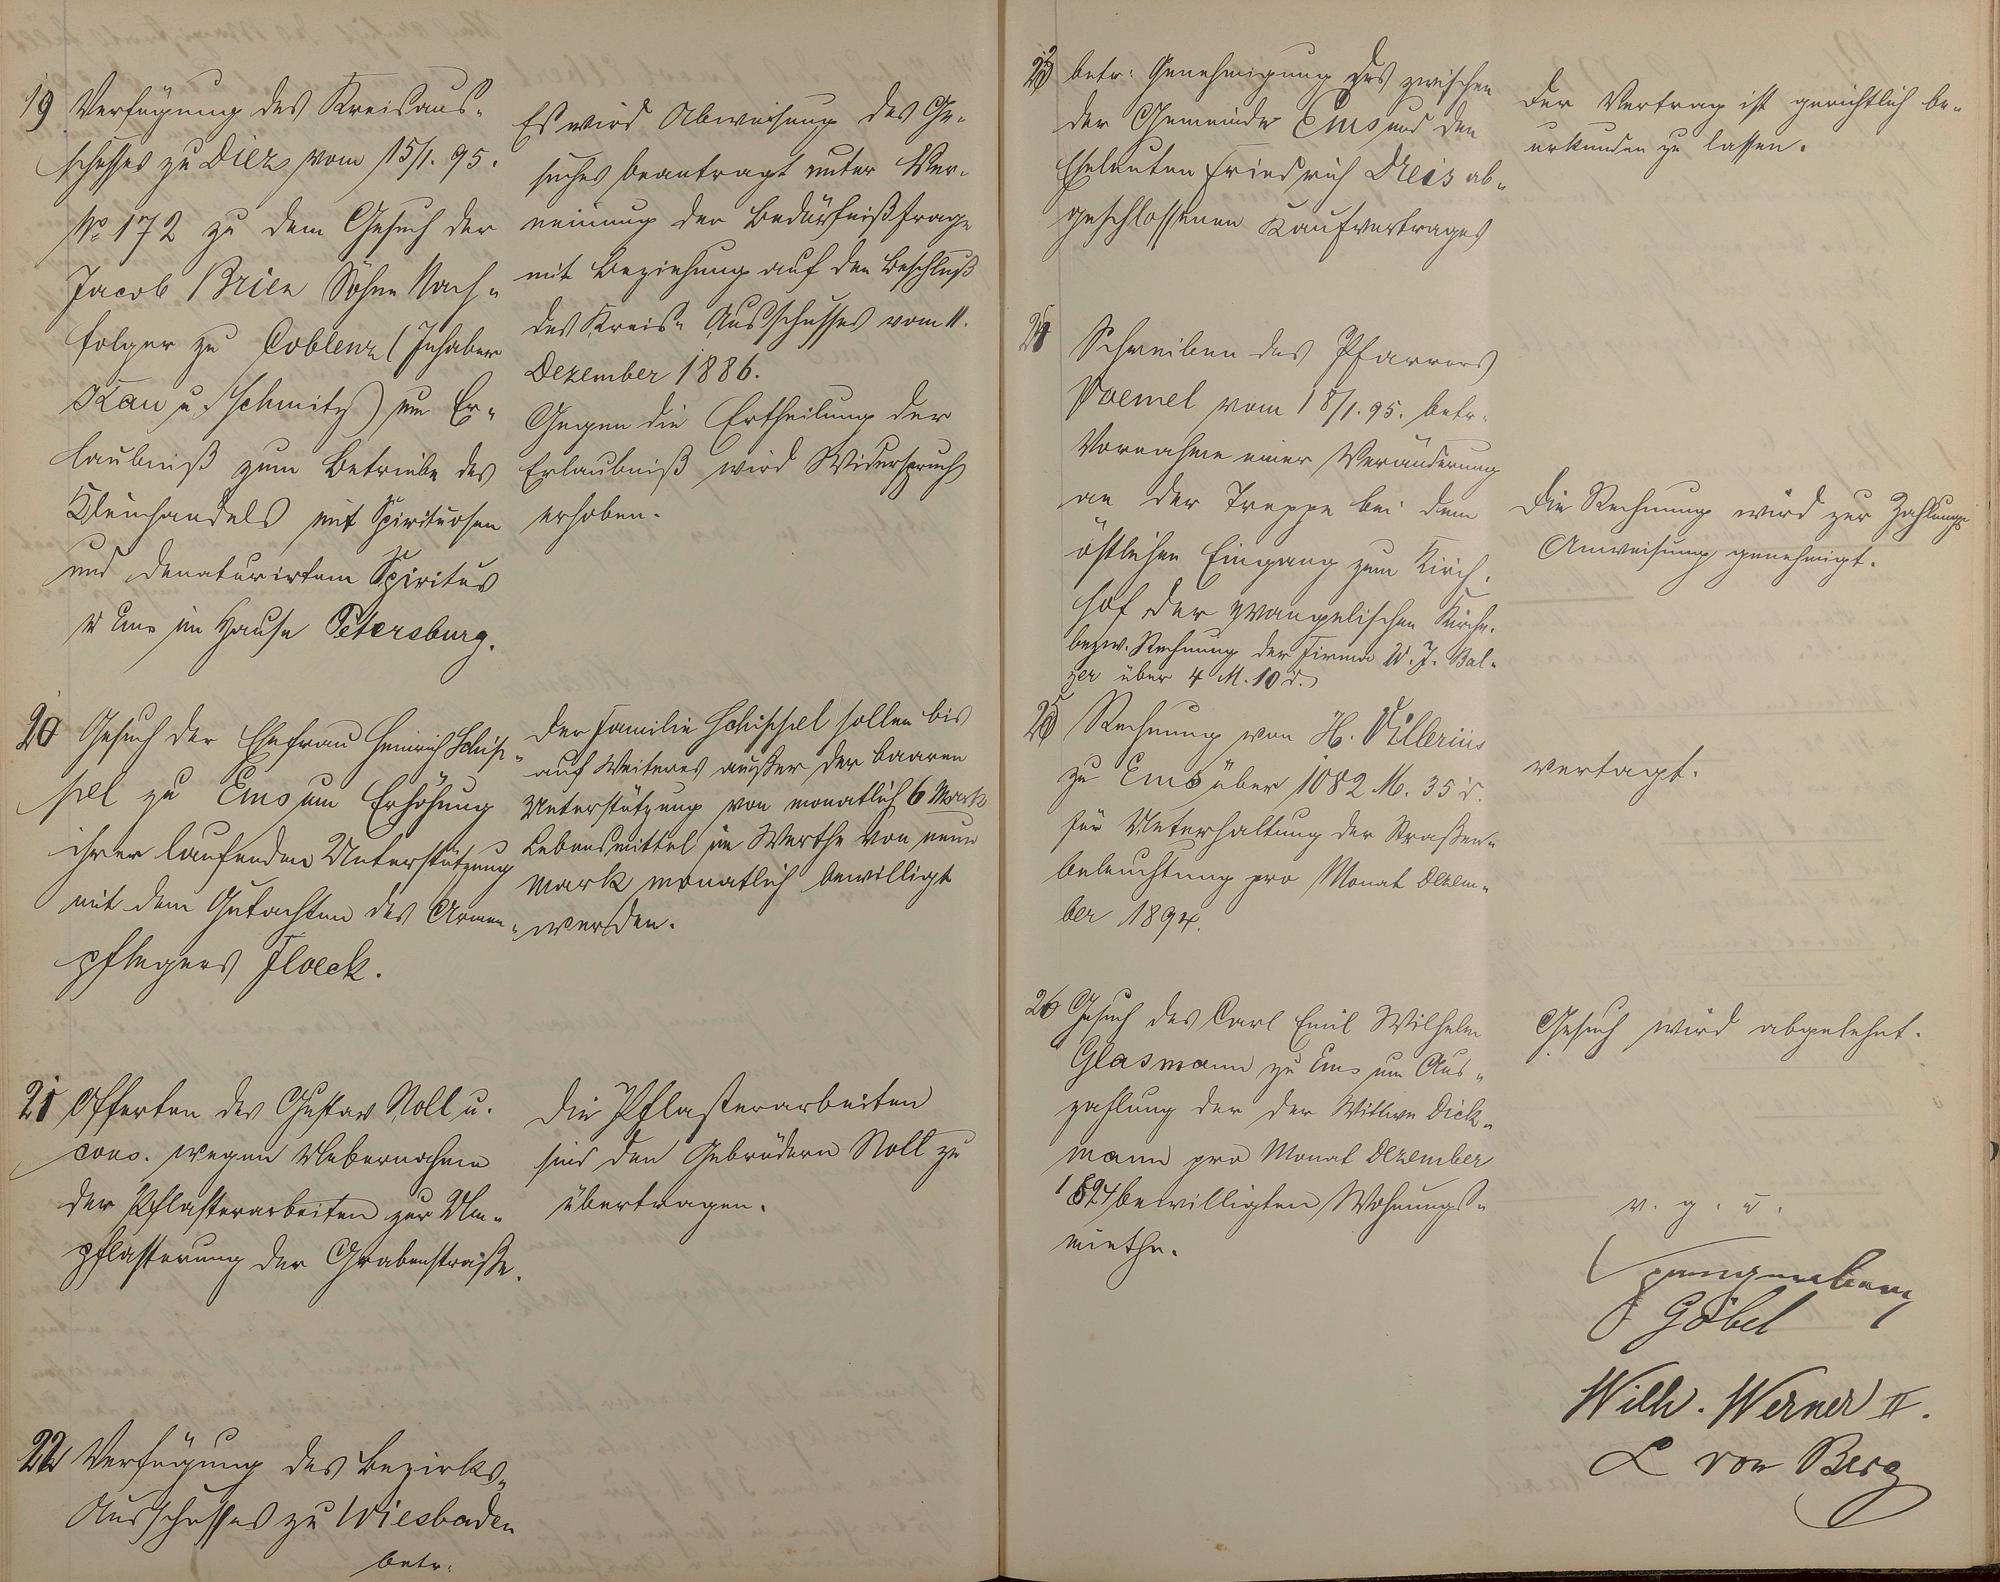 19 Verfügung des Kreisaus-
schusses zu Diez vom 15/1. 95.
No 172 zu dem Gesuch der
Jacob Brien Söhne Nach-
folger zu Coblenz (Inhaber
Kau u. Schmitz) um Er-
laubniß zum Betriebe des
Kleinhandels mit Spirituosen
und denaturirtem Spiritus
zu Ems im Hause Petersburg.
Es wird Abweisung des Ge-
suches beantragt unter Ver-
neinung der Bedürfnißfrage
mit Beziehung auf den Beschluß
des Kreis-Ausschusses vom 11.
Dezember 1886.
Gegen die Ertheilung der
Erlaubniß wird Widerspruch
erhoben.
20 Gesuch der Ehefrau Heinrich Schip-
pel zu Ems um Erhöhung
ihrer laufenden Unterstützung
mit dem Gutachten des Armen-
pflegers Floeck.
Der Familie Schippel sollen bis
auf Weiteres außer der baaren
Unterstützung von monatlich 6 Mark
Lebensmittel im Werthe von neun
Mark monatlich bewilligt
werden.
21 Offerten des Gustav Noll u.
cons. wegen Uebernahme
der Pflasterarbeiten zur Um-
pflasterung der Grabenstraße.
Die Pflasterarbeiten
sind den Gebrüdern Noll zu
übertragen.
22 Verfügung des Bezirks-
Ausschusses zu Wiesbaden
betr.
betr: Genehmigung des zwischen
der Gemeinde Ems und den
Eheleuten Friedrich Dreis ab-
geschlossenen Kaufvertrages
Der Vertrag ist gerichtlich be-
urkunden zu lassen.
24 Schreiben des Pfarrers
Voemel vom 18/1. 95. betr.
Vornahme einer Veränderung
an der Treppe bei dem
östlichen Eingang zum Kirch-
hof der evangelischen Kirche.
bezw. Rechnung der Firma W. J. Bal-
zer über 4 M. 10 d.
Die Rechnung wird zur Zahlungs-
Anweisung genehmigt.
25 Rechnung von H. Villerius
zu Ems über 1082 M. 35 d.
für Unterhaltung der Straßen-
beleuchtung pro Monat Dezem-
ber 1894.
vertagt.
26 Gesuch des Carl Emil Wilhelm
Glasmann zu Ems um Aus-
zahlung der der Wittwe Dick-
mann pro Monat Dezember
1894 bewilligten Wohnungs-
miethe.
Gesuch wird abgelehnt.
v. g. u.
Göbel
Wilh. Werner II.
L von Berg